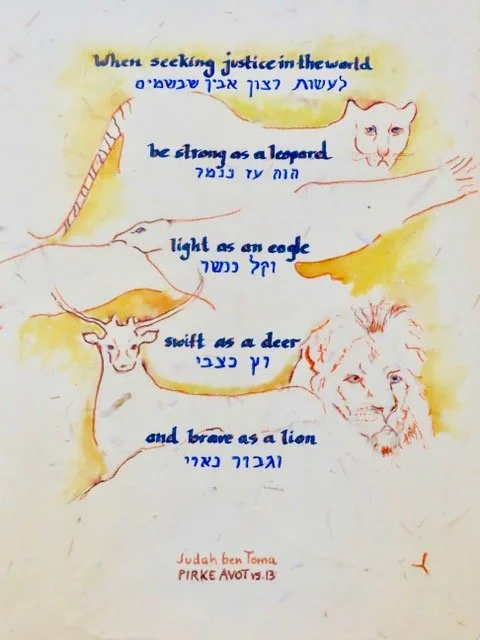 When seeking justice in the world
לעשות רצון אביך שבשמים
be strong as a leopard
הוה עז כנמר
light as an eagle
וקל כנשר
swift as a deer
רץ כצבי
and brave as a lion
וגבור כארי
Judah ben Toma
PIRKE AVOT vs.13